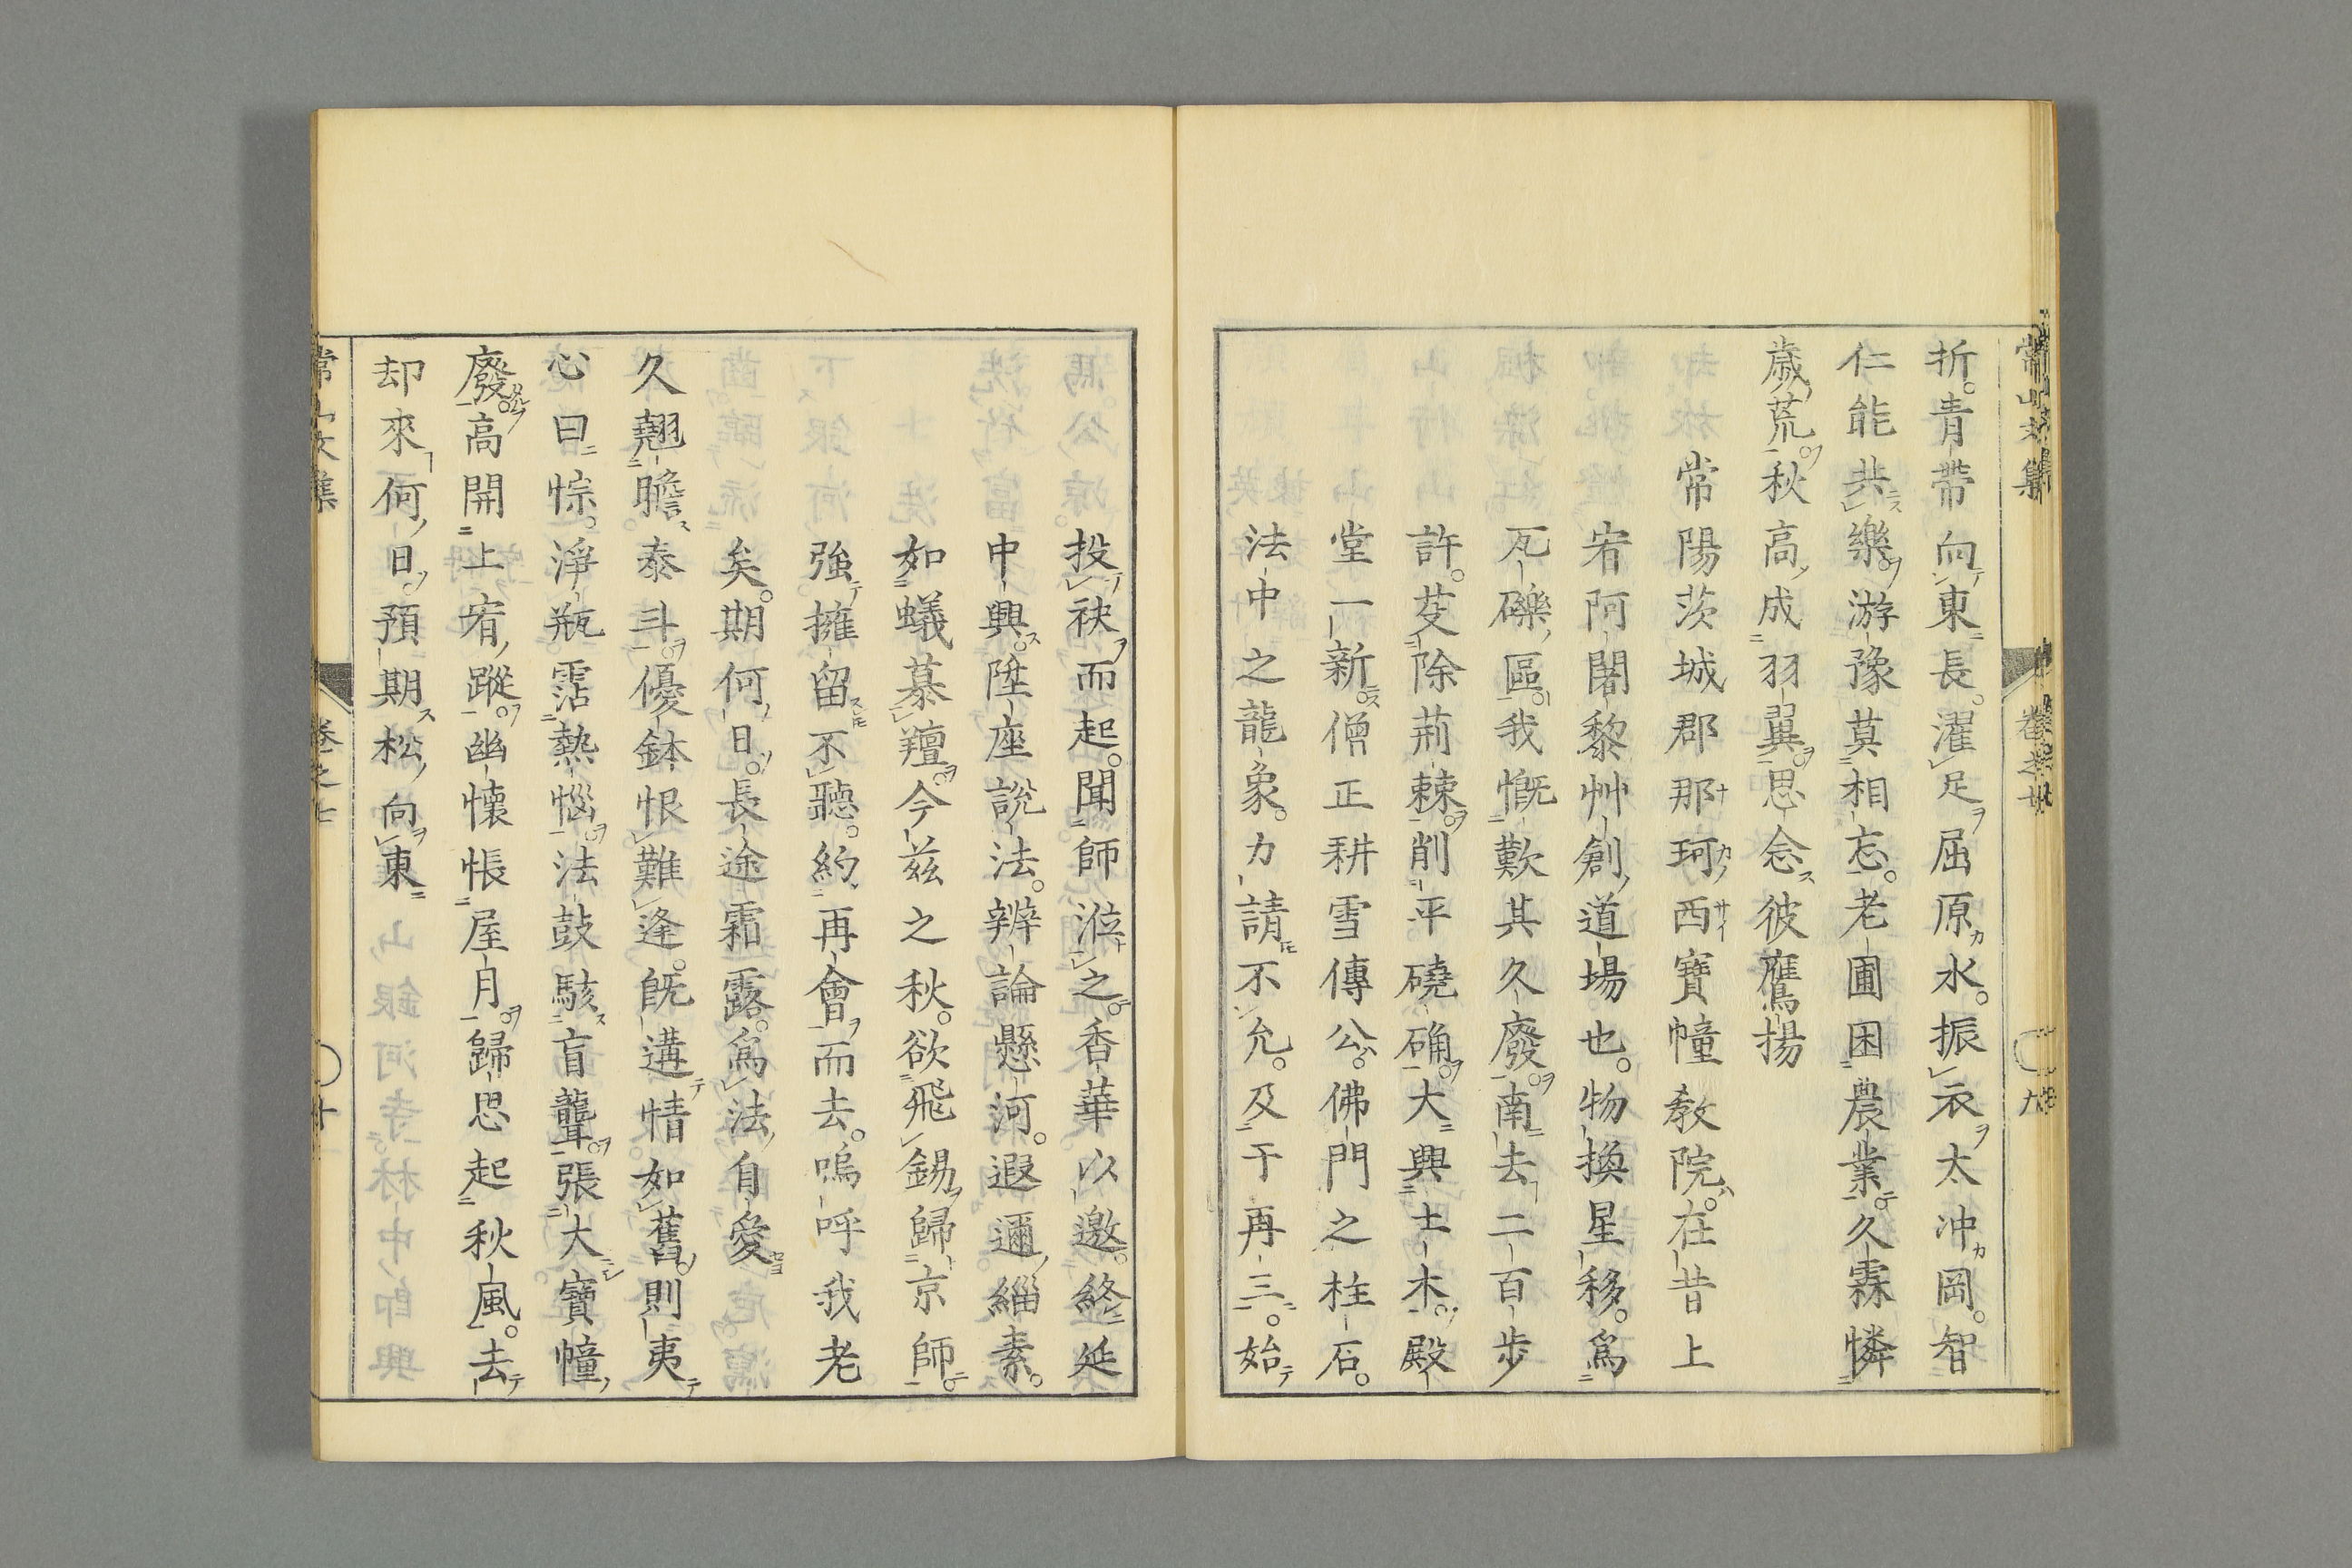 折。青帶向東長。濯足屈原水。振衣太冲岡。智
仁能共樂。游豫莫相忘。老圃困農業。久霖憐
歳荒。秋高成羽翼。思念彼鷹揚
常陽茨城郡那珂西寶幢教院。在昔上
宥阿闍黎艸創道場也。物換星移。爲
瓦礫區。我慨歎其久廢。南去二百歩
許。芟除荊棘。削平磽确。大興土木。殿
堂一新。僧正耕雪傳公。佛門之柱石。
法中之龍象。力請不允。及于再三。始
投袂而起。聞師涖之。香華以邀。終延
中興。陞座説法。辨論懸河。遐邇緇素。
如蟻慕羶。今茲之秋。欲飛錫歸京師。
強擁留不聽。約再會而去。嗚呼我老
矣。期何日。長途霜露。爲法自愛
久翹瞻泰斗。優鉢恨難逢。既遘情如舊。則夷
心曰悰。淨瓶霑熱惱。法鼓駭盲聾。張大寶幢
廢。高開上宥蹤。幽懷悵屋月。歸思起秋風。去
却來何日。預期松向東
常山文集 卷之七 九
常山文集 卷之七 十